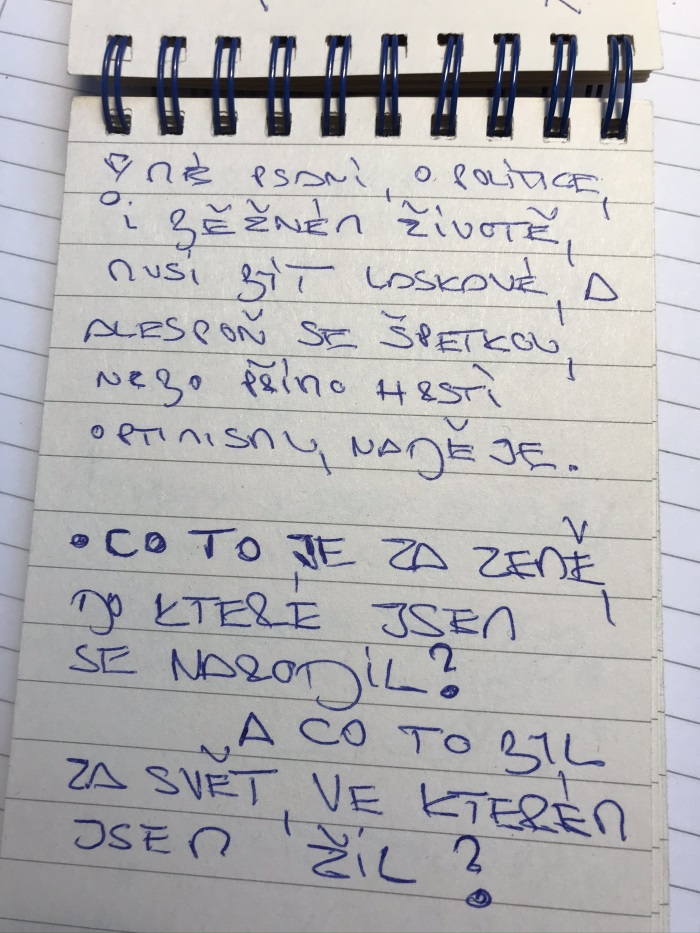 MÉ PSANÍ, O POLITICE,
I BĚŽNÉM ŽIVOTĚ,
MUSÍ BÝT LASKAVÉ, A
ALESPOŇ SE ŠPETKOU,
NEBO PŘÍMO HRSTÍ
OPTIMISMU, NADĚJE.
• CO TO JE ZA ZEMĚ,
DO KTERÉ JSEM
SE NARODIL?
A CO TO BYL
ZA SVĚT, VE KTERÉM
JSEM ŽIL?